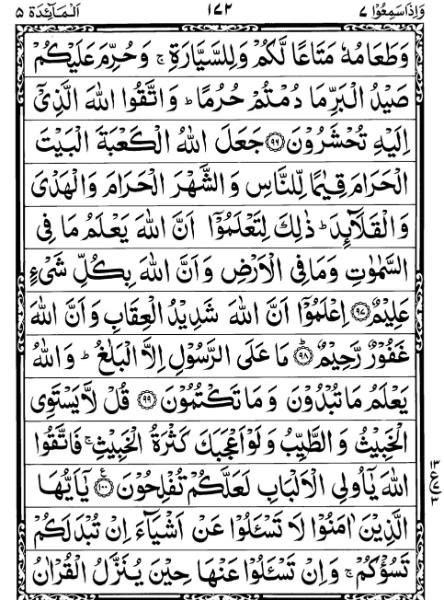 وَاِذَا سَمِعُوْا ٧ ١٧٢ اَلْمَآئِدَة ٥
وَطَعَامُهٗ مَتَاعًا لَّكُمْ وَلِلسَّيَّارَةِ ۚ وَحُرِّمَ عَلَيْكُمْ
صَيْدُ الْبَرِّ مَا دُمْتُمْ حُرُمًا ؕ وَاتَّقُوا اللّٰهَ الَّذِيْۤ
اِلَيْهِ تُحْشَرُوْنَ ۝٩٦ جَعَلَ اللّٰهُ الْكَعْبَةَ الْبَيْتَ
الْحَرَامَ قِيٰمًا لِّلنَّاسِ وَالشَّهْرَ الْحَرَامَ وَالْهَدْيَ
وَالْقَلَآئِدَ ؕ ذٰلِكَ لِتَعْلَمُوْۤا اَنَّ اللّٰهَ يَعْلَمُ مَا فِي
السَّمٰوٰتِ وَمَا فِي الْاَرْضِ وَاَنَّ اللّٰهَ بِكُلِّ شَيْءٍ
عَلِيْمٌ ۝٩٧ اِعْلَمُوْۤا اَنَّ اللّٰهَ شَدِيْدُ الْعِقَابِ وَاَنَّ اللّٰهَ
غَفُوْرٌ رَّحِيْمٌ ۝٩٨ مَا عَلَى الرَّسُوْلِ اِلَّا الْبَلٰغُ ؕ وَاللّٰهُ
يَعْلَمُ مَا تُبْدُوْنَ وَمَا تَكْتُمُوْنَ ۝٩٩ قُلْ لَّا يَسْتَوِي
الْخَبِيْثُ وَالطَّيِّبُ وَلَوْ اَعْجَبَكَ كَثْرَةُ الْخَبِيْثِ ۚ فَاتَّقُوا
اللّٰهَ يٰۤاُولِي الْاَلْبَابِ لَعَلَّكُمْ تُفْلِحُوْنَ ۝١٠٠ ع يٰۤاَيُّهَا
١٣ ع ٣
الَّذِيْنَ اٰمَنُوْا لَا تَسْـَٔلُوْا عَنْ اَشْيَآءَ اِنْ تُبْدَ لَكُمْ
تَسُؤْكُمْ ۚ وَاِنْ تَسْـَٔلُوْا عَنْهَا حِيْنَ يُنَزَّلُ الْقُرْاٰنُ